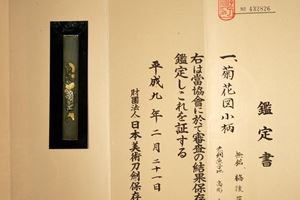 No 432826
鑑定書
一、菊花図小柄
無銘
右は當協會に於て審査の結果保存
鑑定しこれを証する
平成九年二月二十一日
財團法人日本美術刀劍保存